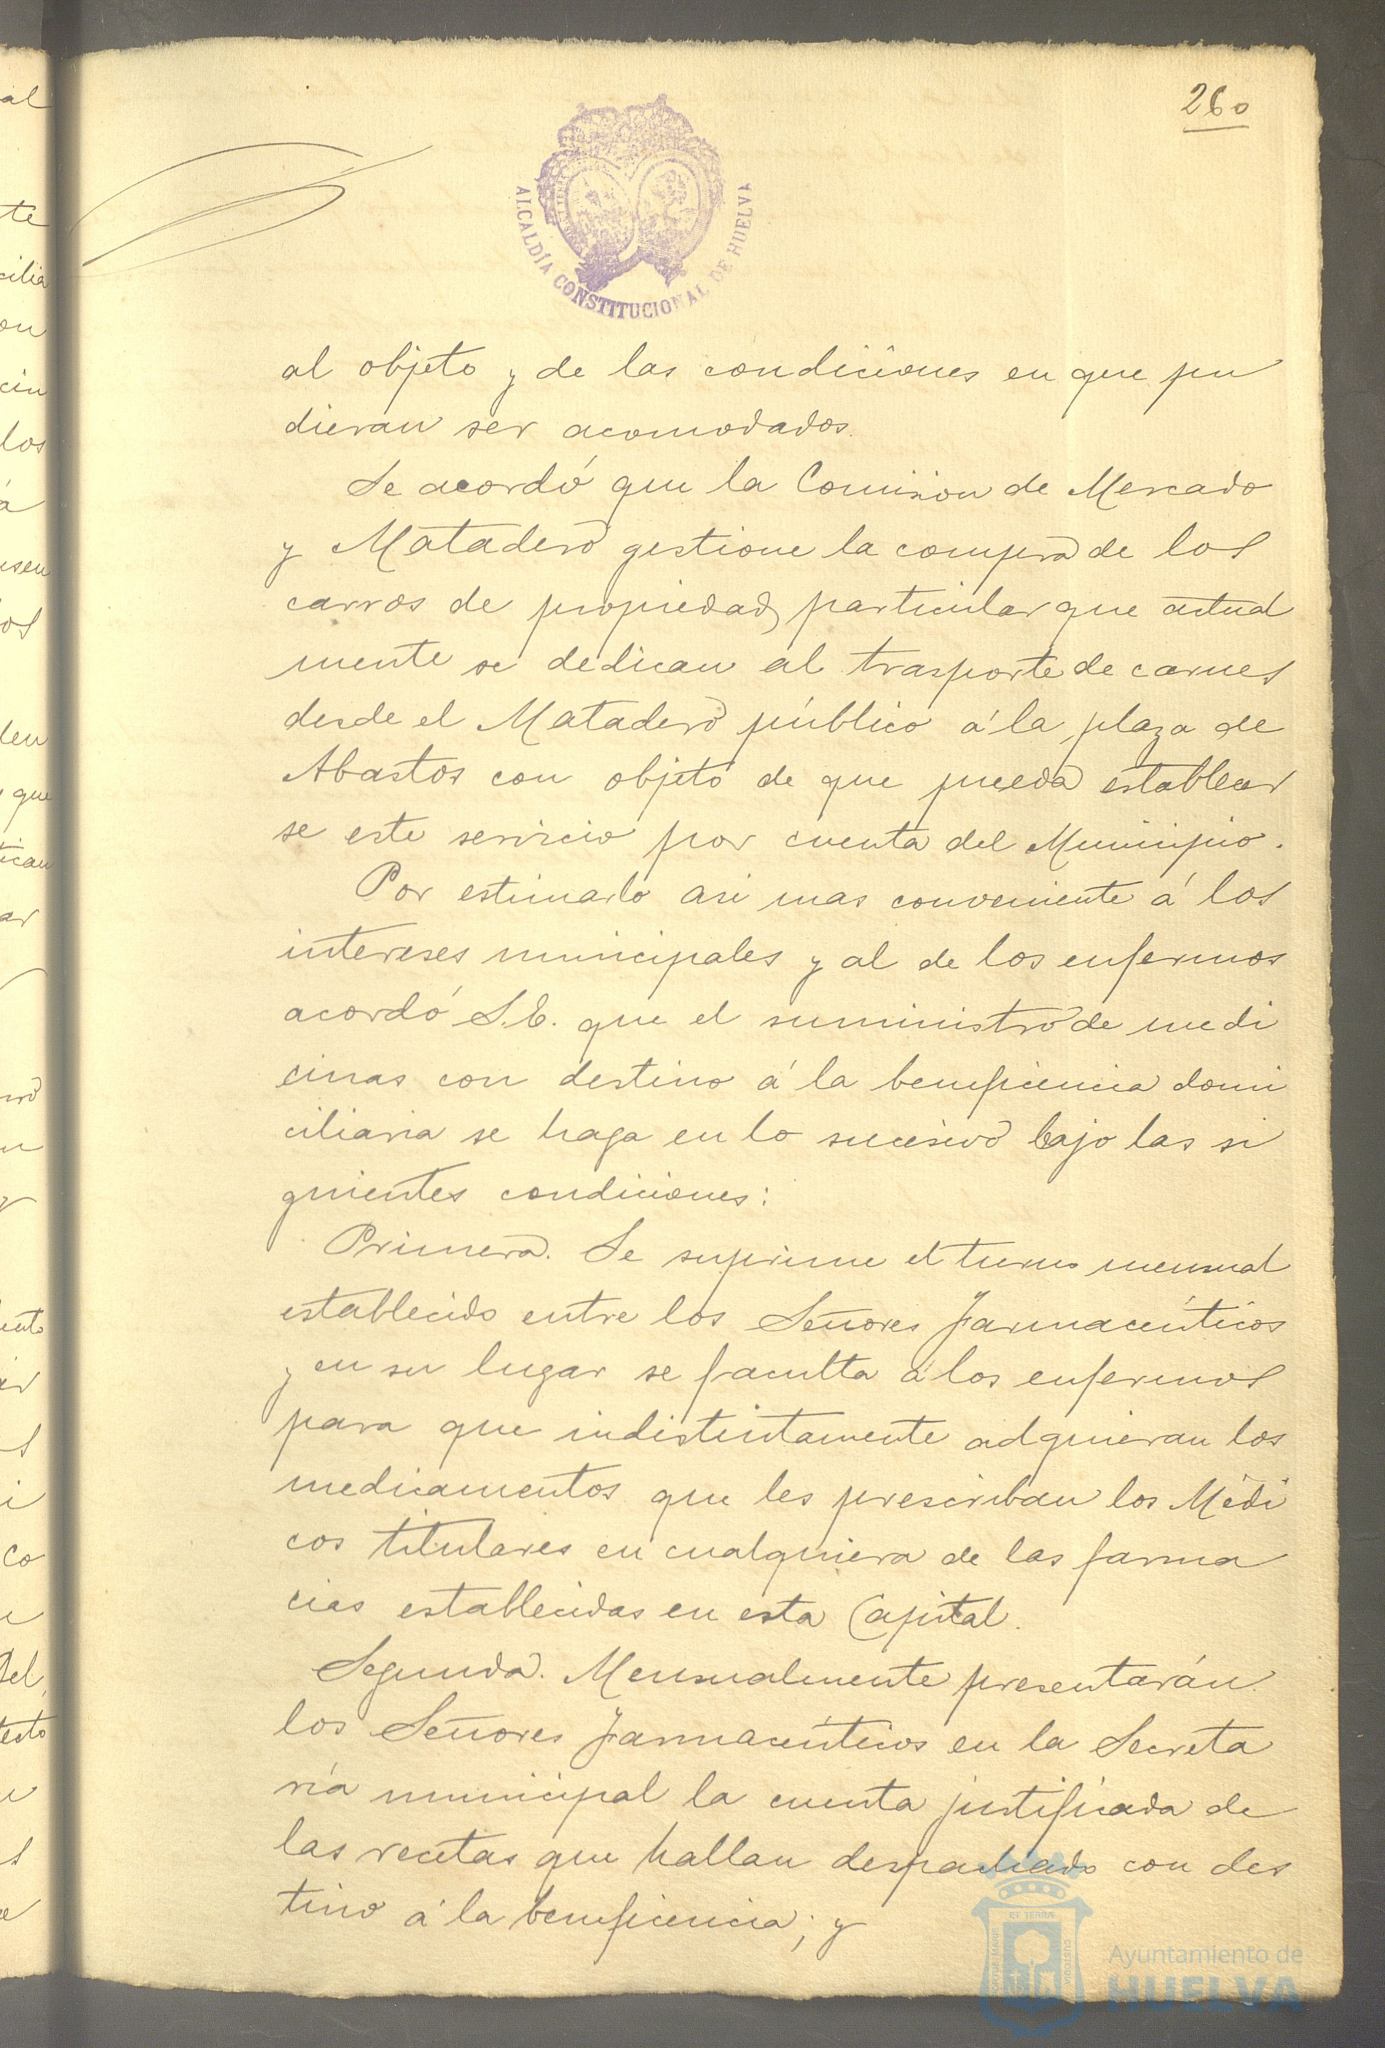 260
ALCALDÍA CONSTITUCIONAL DE HUELVA
al objeto y de las condiciones en que pu
dieran ser acomodados.
Se acordó que la Comision de Mercado
y Matadero gestione la compra de los
carros de propiedad particular que actual
mente se dedican al trasporte de carnes
desde el Matadero público á la plaza de
Abastos con objeto de que pueda establecer
se este servicio por cuenta del Municipio.
Por estimarlo asi mas conveniente á los
intereses municipales y al de los enfermos
acordó S.E. que el suministro de medi
cinas con destino á la beneficencia domi
ciliaria se haga en lo sucesivo bajo las si
guientes condiciones:
Primera. Se suprime el turno mensual
establecido entre los Señores Farmacéuticos
y en su lugar se faculta á los enfermos
para que indistintamente adquieran los
medicamentos que les prescriban los Médi
cos titulares en cualquiera de las farma
cias establecidas en esta Capital.
Segunda. Mensualmente presentarán
los Señores Farmacéuticos en la Secreta
ría municipal la cuenta justificada de
las recetas que hallan despachado con des
tino á la beneficencia; y
Ayuntamiento de
HUELVA